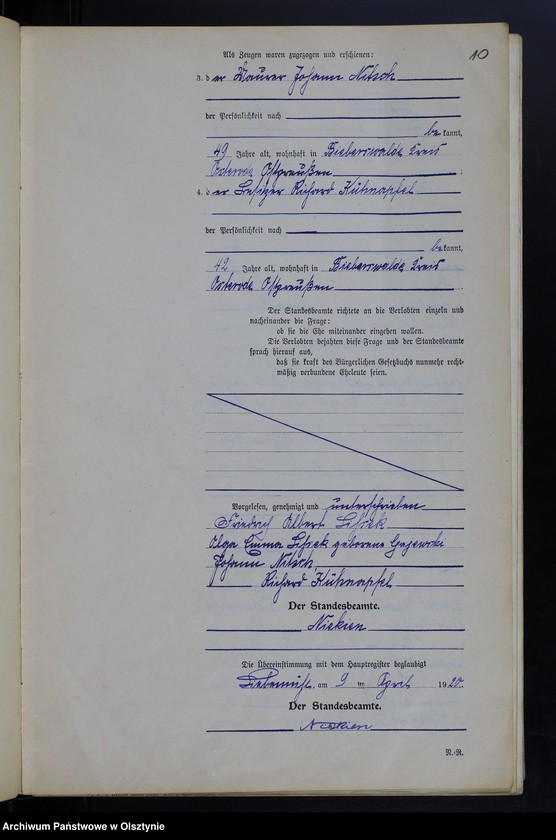 10
Als Zeugen waren zugezogen und erschienen:
3. der Maurer Johann Nitsch
der Persönlichkeit nach
bekannt,
49 Jahre alt, wohnhaft in Bieberswalde Kreis
Osterode Ostpreußen;
4. der Besitzer Richard Kühnapfel
der Persönlichkeit nach
bekannt,
42 Jahre alt, wohnhaft in Bieberswalde Kreis
Osterode Ostpreußen.
Der Standesbeamte richtete an die Verlobten einzeln und
nacheinander die Frage:
ob sie die Ehe miteinander eingehen wollen.
Die Verlobten bejahten diese Frage und der Standesbeamte
sprach hierauf aus,
daß sie kraft des Bürgerlichen Gesetzbuchs nunmehr recht-
mäßig verbundene Eheleute seien.
Vorgelesen, genehmigt und unterschrieben
Friedrich Albert
Olga Emma geborene Gajewski
Johann Nitsch
Richard Kühnapfel
Der Standesbeamte.
Die Übereinstimmung mit dem Hauptregister beglaubigt
Liebemühl, am 9 ten April 1920.
Der Standesbeamte.
N.-R.
Archiwum Państwowe w Olsztynie